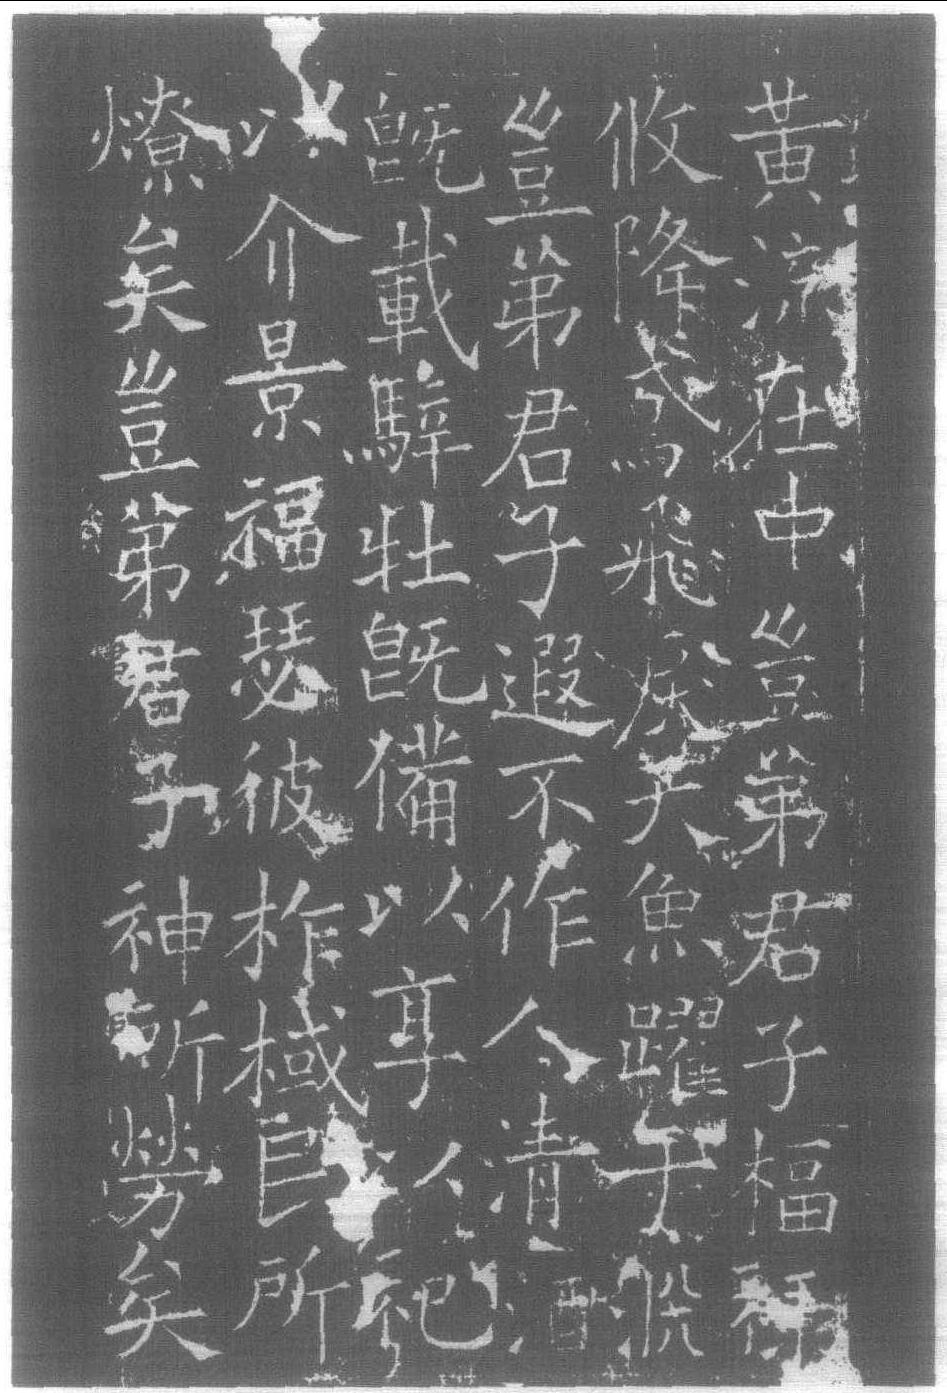 黃流在中豈弟君子福祿
攸降鳶飛戾天魚躍于淵
豈弟君子遐不作人清酒
旣載騂牡旣備以享以祀
以介景福瑟彼柞棫民所
燎矣豈弟君子神所勞矣